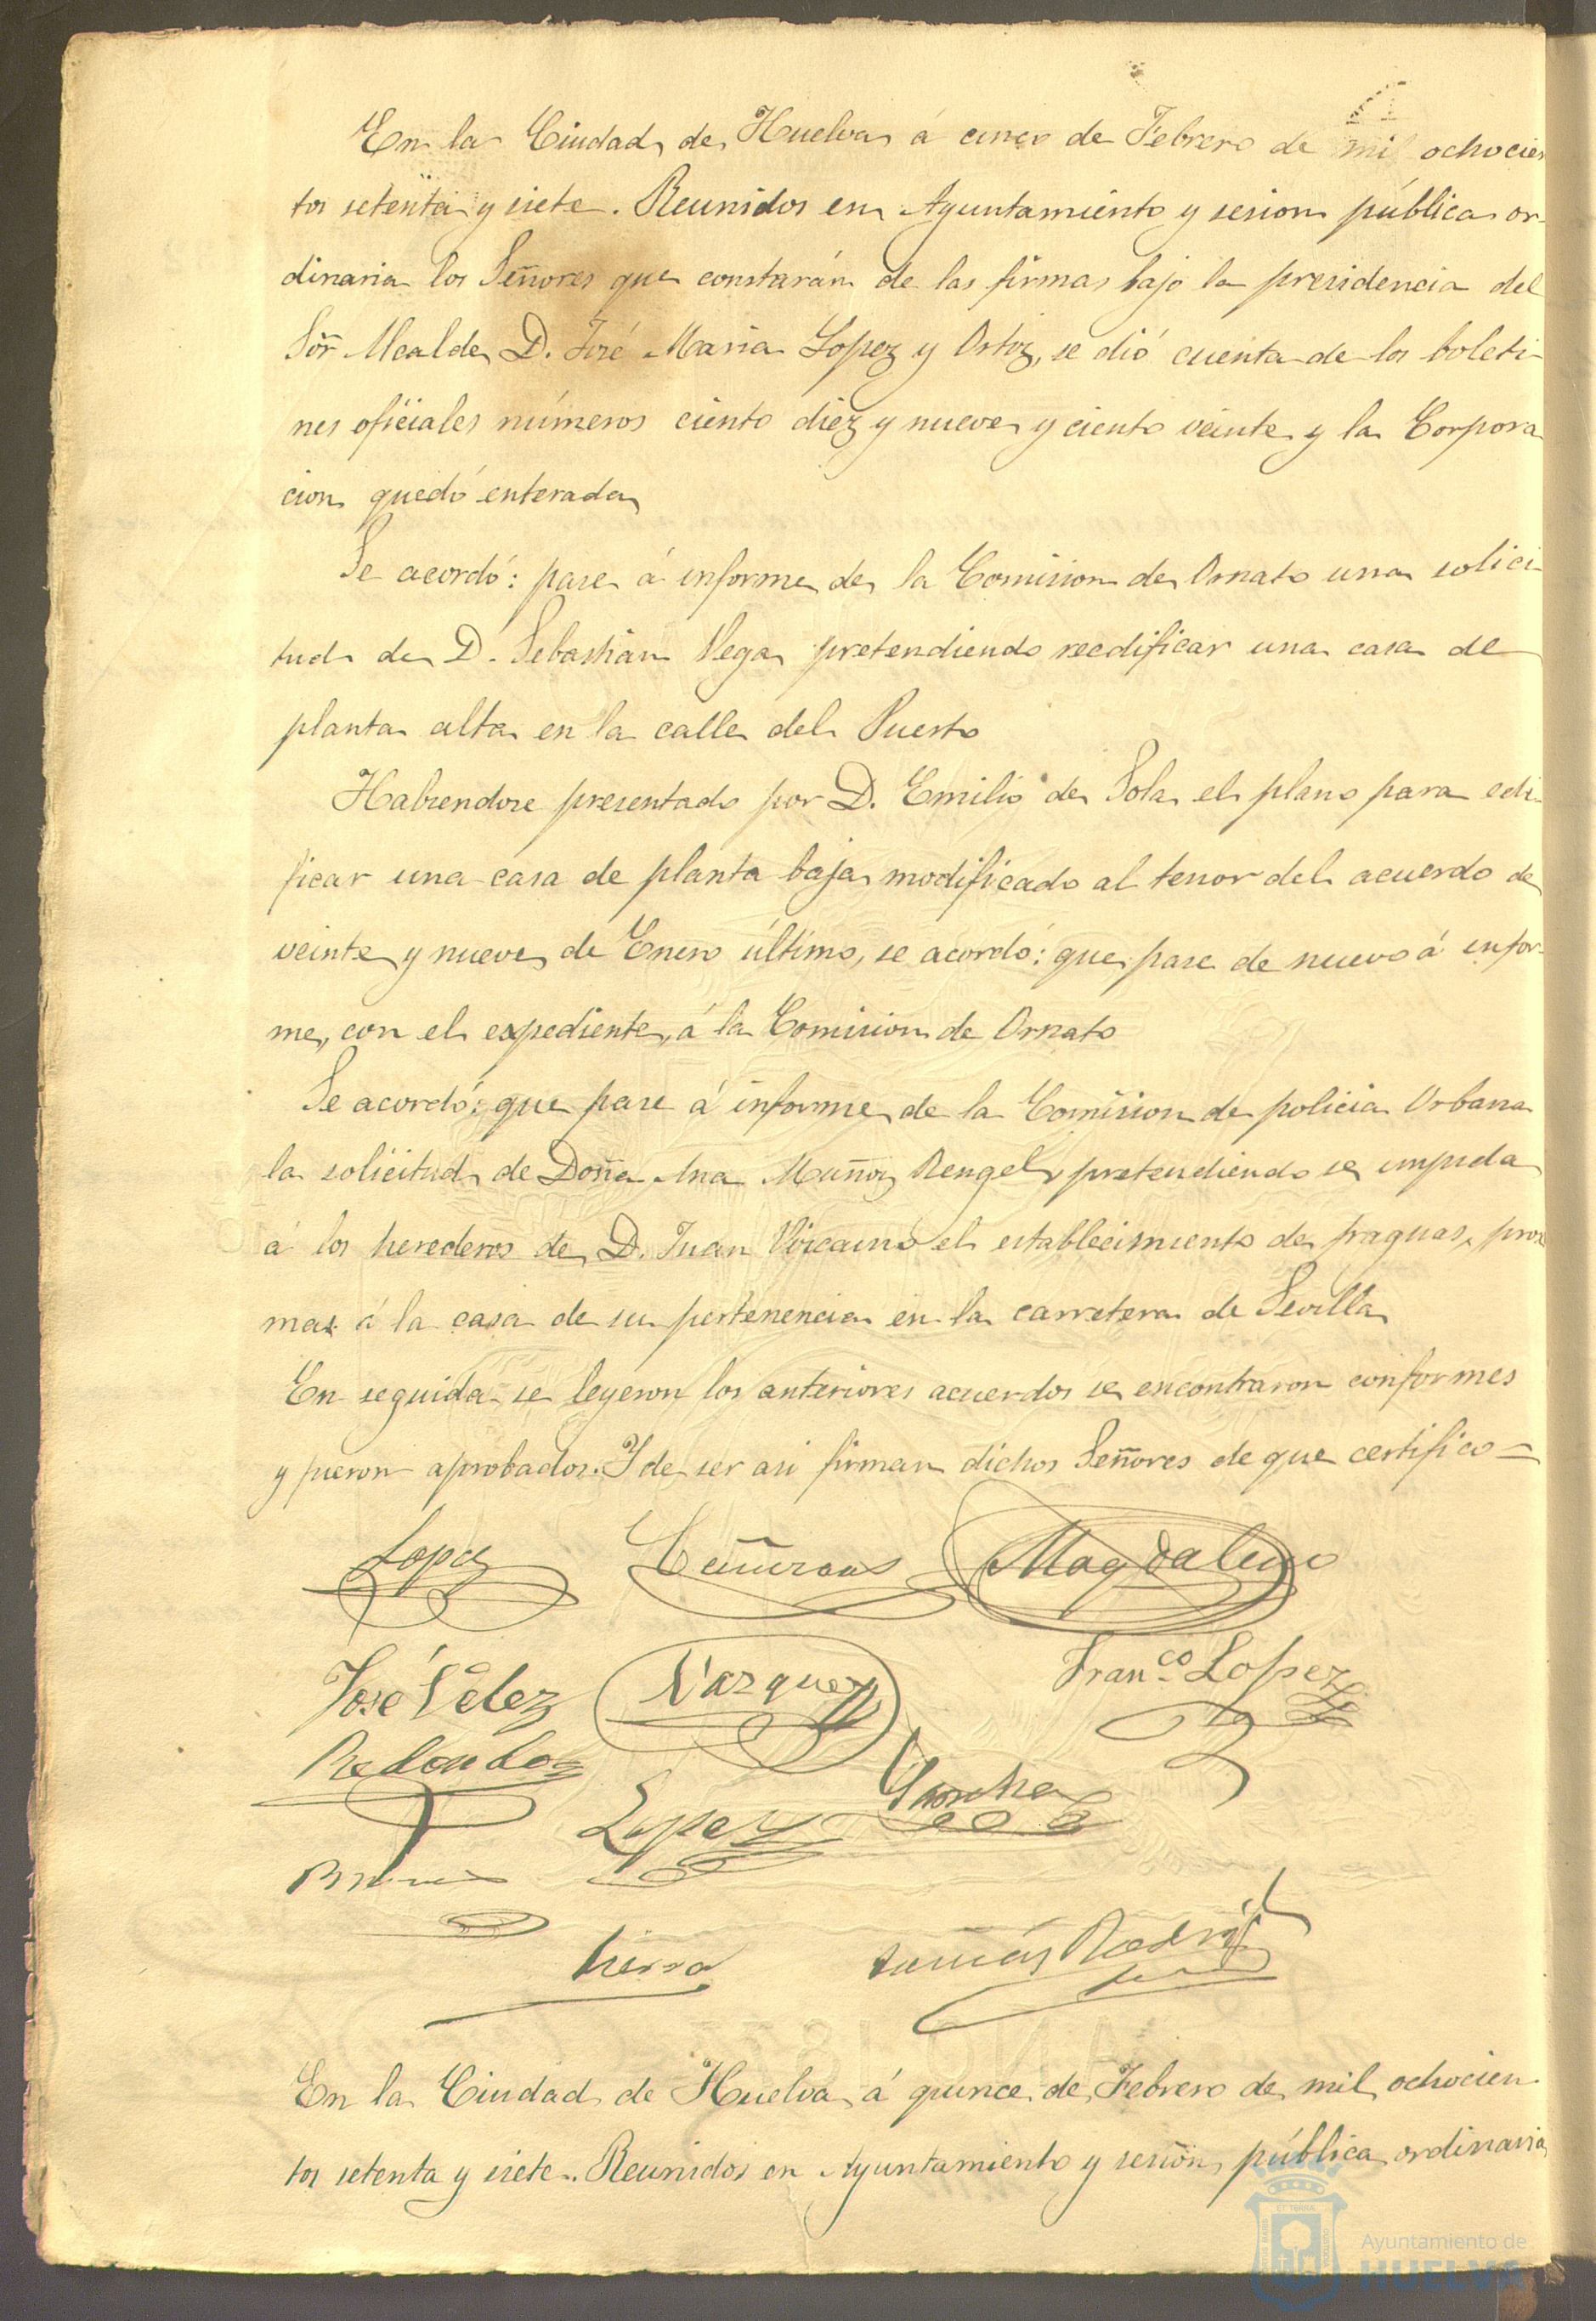 En la Ciudad de Huelva á cinco de Febrero de mil ochocien
tos setenta y siete. Reunidos en Ayuntamiento y sesion pública or-
dinaria los Señores que constarán de las firmas bajo la presidencia del
Sôr Alcalde D. José Maria Lopez y Ortiz, se dió cuenta de los boleti-
nes oficiales números ciento diez y nueve y ciento veinte y la Corpora
cion quedó enterada
Se acordó: pase á informe de la Comision de Ornato una solici-
tud de D. Sebastián Vega pretendiendo reedificar una casa de
planta alta en la calle del Puerto
Habiendose presentado por D. Emilio de Sola el plano para edi-
ficar una casa de planta baja modificado al tenor del acuerdo de
veinte y nueve de Enero último, se acordó: que pase de nuevo á infor-
me, con el expediente, á la Comision de Ornato
Se acordó: que pase á informe de la Comision de policia Urbana
la solicitud de Doña Ana Muñoz Rengel, pretendiendo se impida
á los herederos de D. Juan Vizcaino el establecimiento de fraguas, proxi
mas á la casa de su pertenencia en la carretera de Sevilla
En seguida se leyeron los anteriores acuerdos se encontraron conformes
y fueron aprobados. Y de ser asi firman dichos Señores de que certifico=
Lopez Magdaleno
José Velez Vazquez Franco Lopez
Redondo
Lopez
Tierra Tomás Rodrig
En la Ciudad de Huelva á quince de Febrero de mil ochocien-
tos setenta y siete. Reunidos en Ayuntamiento y sesion pública ordinaria
Ayuntamiento de
HUELVA